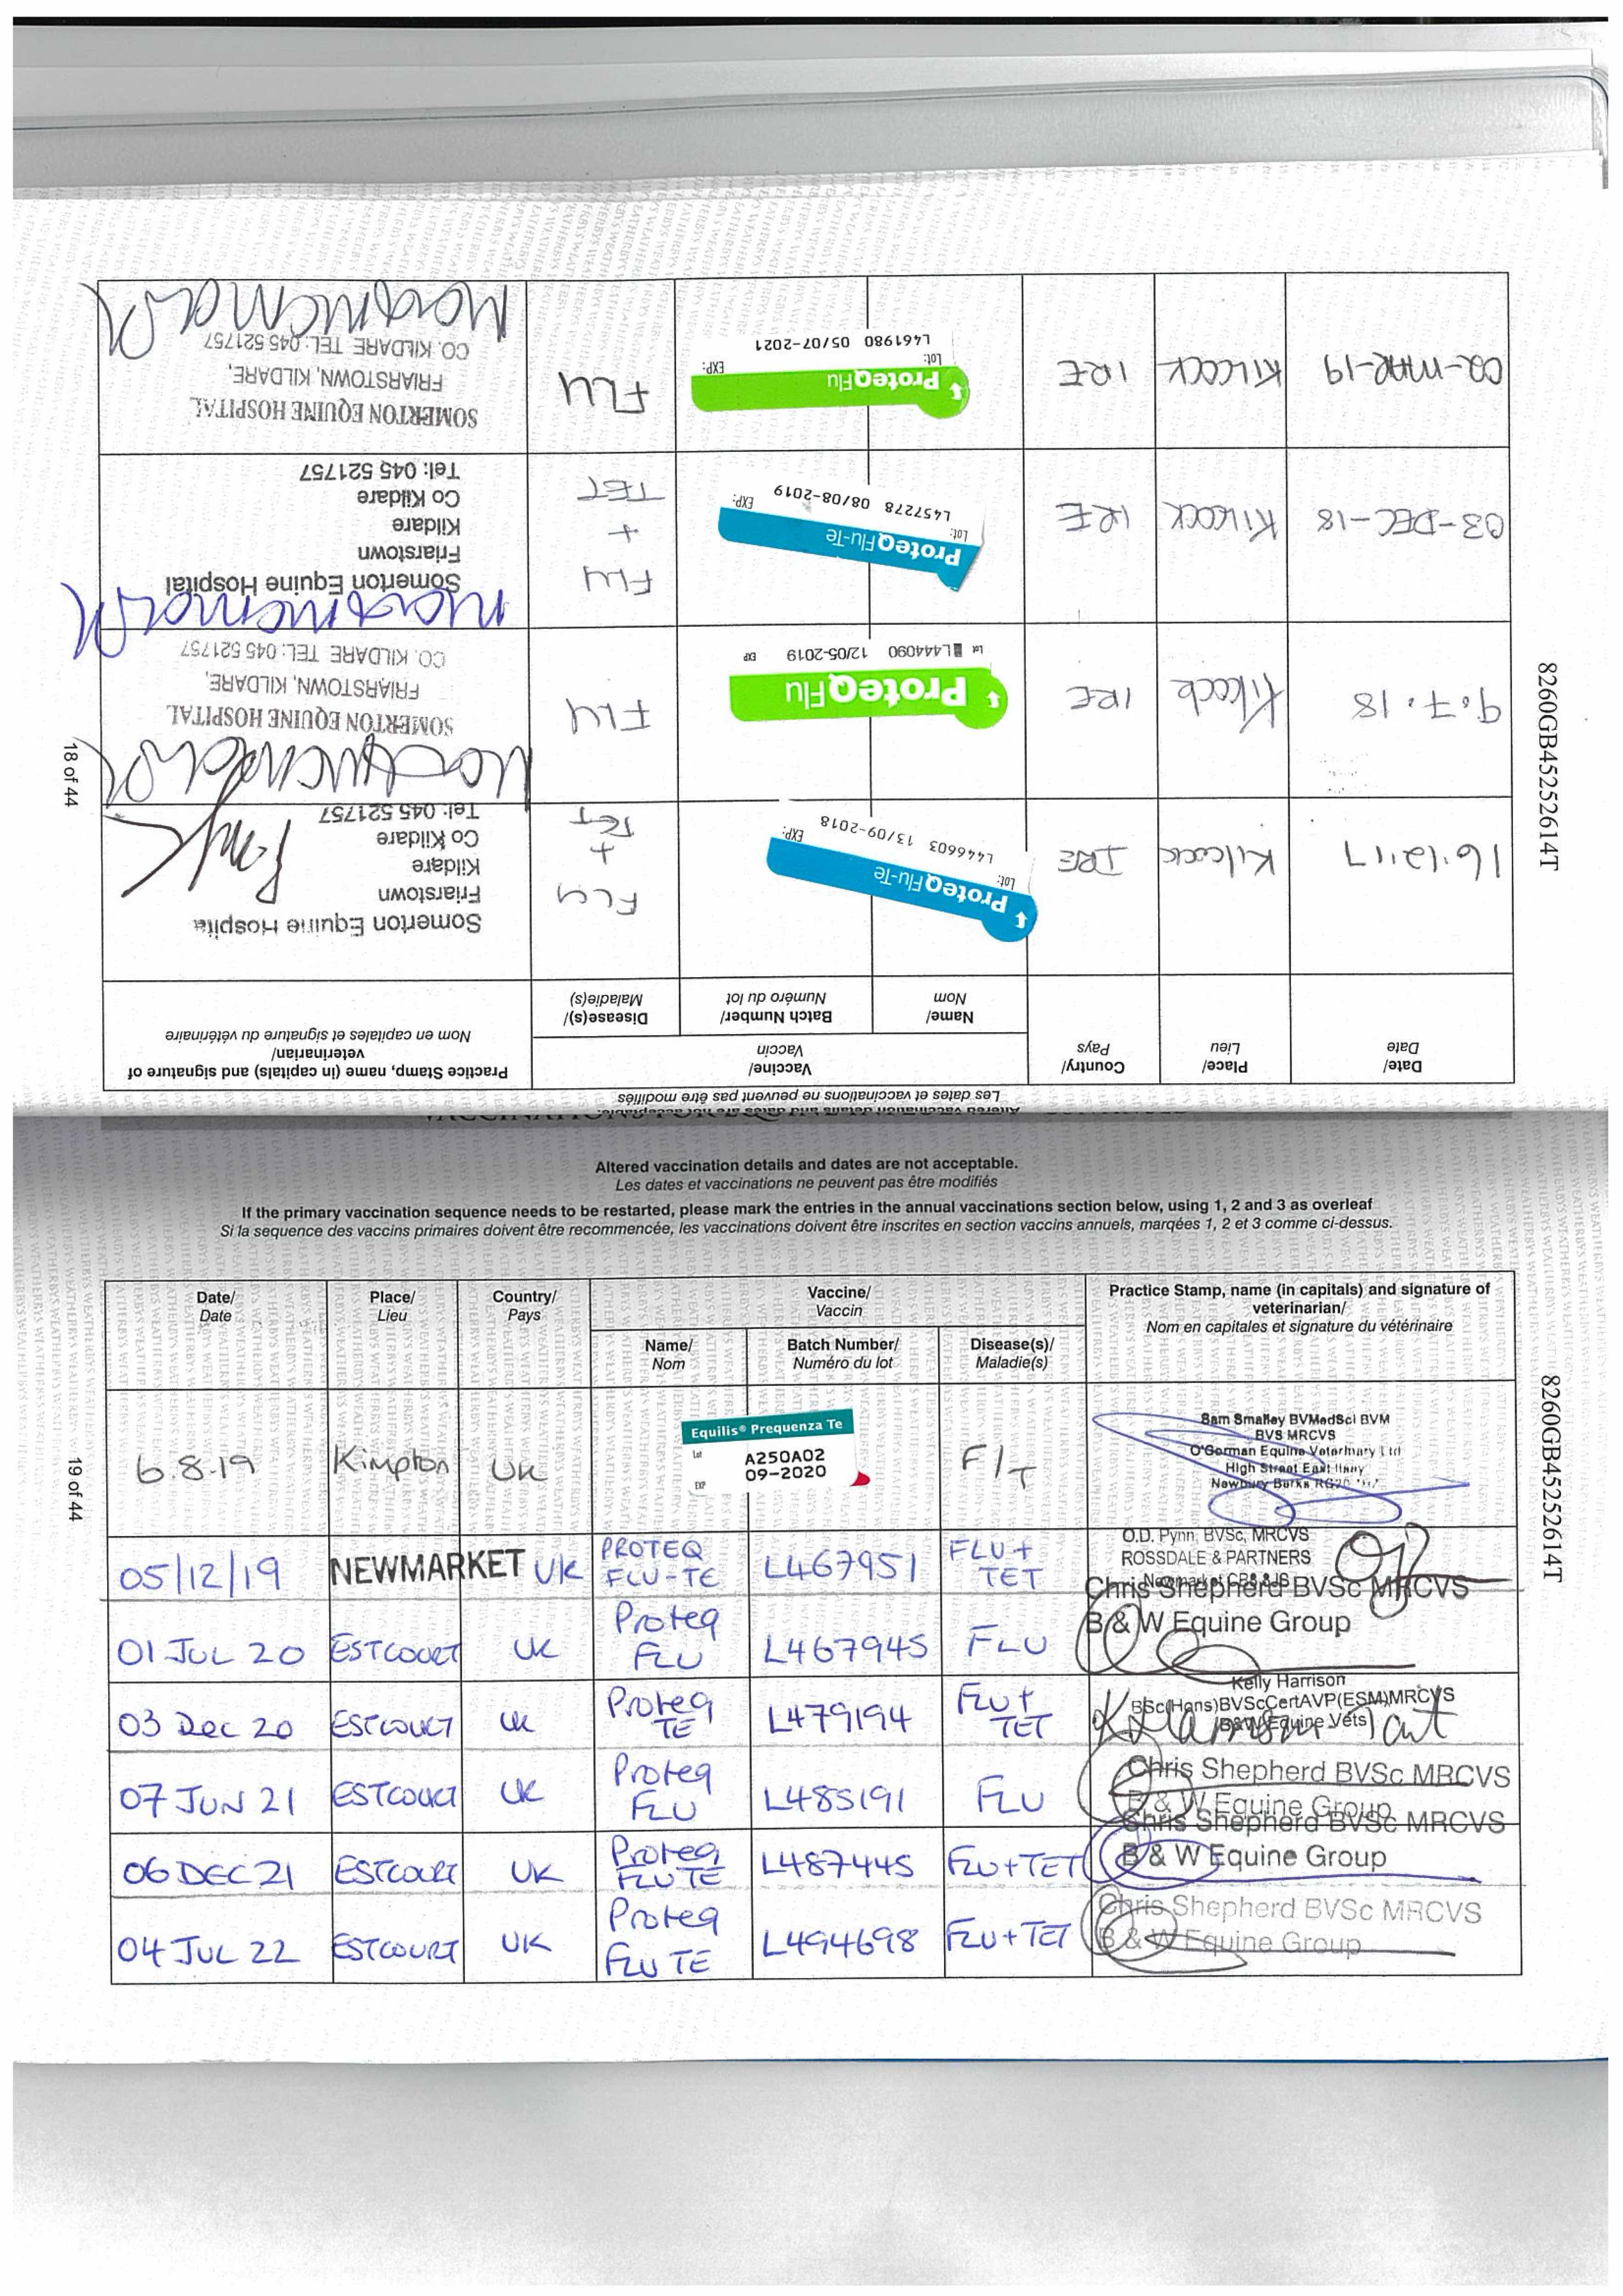 VACCINATIONS
Altered vaccination details and dates are not acceptable.
Les dates et vaccinations ne peuvent pas être modifiés
Date/
Date
Place/
Lieu
Country/
Pays
Vaccine/
Vaccin
Name/
Nom
Batch Number/
Numéro du lot
Disease(s)/
Maladie(s)
Practice Stamp, name (in capitals) and signature of
veterinarian/
Nom en capitales et signature du vétérinaire
16.12.17
Kilcock
IRE
ProteqFlu-Te
Lot: EXP:
L446603 13/09-2018
FLU
+
TET
Somerton Equine Hospital
Friarstown
Kildare
Co Kildare
Tel: 045 521757
9.7.18
Kilcock
IRE
ProteqFlu
Lot L444090 12/05-2019 EXP
FLU
SOMERTON EQUINE HOSPITAL
FRIARSTOWN, KILDARE,
CO. KILDARE TEL: 045 521757
03-DEC-18
KILCOCK
IRE
ProteqFlu-Te
Lot: EXP:
L457278 08/08-2019
FLU
+
TET
Somerton Equine Hospital
Friarstown
Kildare
Co Kildare
Tel: 045 521757
02-MAR-19
KILCOCK
IRE
ProteqFlu
Lot: EXP:
L461980 05/07-2021
FLU
SOMERTON EQUINE HOSPITAL
FRIARSTOWN, KILDARE,
CO. KILDARE TEL: 045 521757
18 of 44
8260GB45252614T
Altered vaccination details and dates are not acceptable.
Les dates et vaccinations ne peuvent pas être modifiés
If the primary vaccination sequence needs to be restarted, please mark the entries in the annual vaccinations section below, using 1, 2 and 3 as overleaf
Si la sequence des vaccins primaires doivent être recommencée, les vaccinations doivent être inscrites en section vaccins annuels, marqées 1, 2 et 3 comme ci-dessus.
Date/
Date
Place/
Lieu
Country/
Pays
Vaccine/
Vaccin
Name/
Nom
Batch Number/
Numéro du lot
Disease(s)/
Maladie(s)
Practice Stamp, name (in capitals) and signature of
veterinarian/
Nom en capitales et signature du vétérinaire
6.8.19
Kimpton
UK
Equilis® Prequenza Te
Lot A250A02
EXP 09-2020
F/T
Sam Smalley BVMedSci BVM
BVS MRCVS
O'Gorman Equine Veterinary Ltd
High Street East Ilsley
Newbury Berks
05/12/19
NEWMARKET
UK
PROTEQ
FLU-TE
L467951
FLU +
TET
O.D. Pynn, BVSc, MRCVS
ROSSDALE & PARTNERS
Newmarket CB8 8JS
01 JUL 20
ESTCOURT
UK
Proteq
FLU
L467945
FLU
Chris Shepherd BVSc MRCVS
B & W Equine Group
03 Dec 20
ESTCOURT
UK
Proteq
TE
L479194
FLU +
TET
Kelly Harrison
BSc(Hons)BVScCertAVP(ESM)MRCVS
B&W Equine Vets
07 JUN 21
ESTCOURT
UK
Proteq
FLU
L485191
FLU
Chris Shepherd BVSc MRCVS
B & W Equine Group
06 DEC 21
ESTCOURT
UK
Proteq
FLU TE
L487445
FLU+TET
Chris Shepherd BVSc MRCVS
B & W Equine Group
04 JUL 22
ESTCOURT
UK
Proteq
FLU TE
L494698
FLU+TET
Chris Shepherd BVSc MRCVS
B & W Equine Group
19 of 44
8260GB45252614T